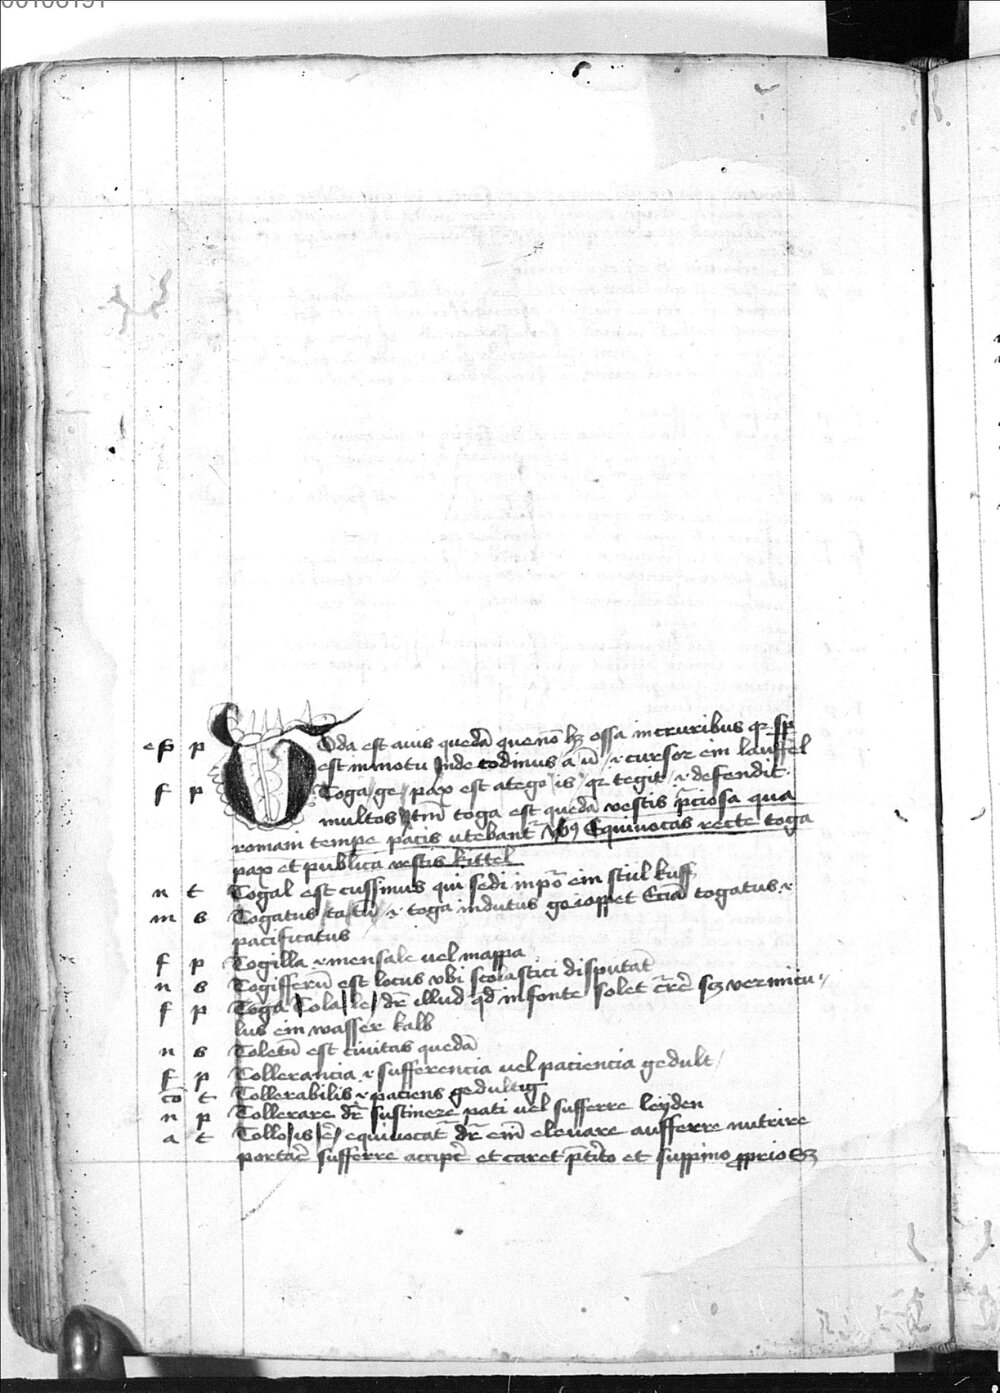 00100191
ep p Toda est auis quedā que nō hꝫ ossa in cruribus qꝛ sp̄
est in motu Inde todinus a ū / ⁊ cursor ein lauffel
f p Toga / ge / pax est a tego is qꝛ tegit ⁊ defendit
multos Itm̄ toga est quedā vestis p̄ciosa qua
romani tempe pacis utebant̄ Equiuocas recte toga
pax et publica vestis kittel
n t Togal est cussinus qui sedi inpoīt ein stůl kuss
m s Togatus / ta / tū / ⁊ toga indutus Eciā togatus ⁊
pacificatus
f p Togilla ⁊ mensale uel mappa
n s Togifferiū est locus vbi scolastici disputāt
f p Toga Tola / le / dr̄ illud qd in fonte solet cr̄cē sꝫ vermicu
lus ein wasser kalb
n s Toletū est ciuitas quedā
f p Tollerancia ⁊ sufferencia uel paciencia gedult /
cō t Tollerabilis ⁊ paciens gedultig
n p Tollerare dr̄ sustinere pati uel sufferre leyden
a t Tollo / is / ē / equiuocat̄ dr̄ eīm eleuare aufferre nutrire
portar̄e sufferre accipe et caret p̄tito et suppino ꝓprio Sꝫ